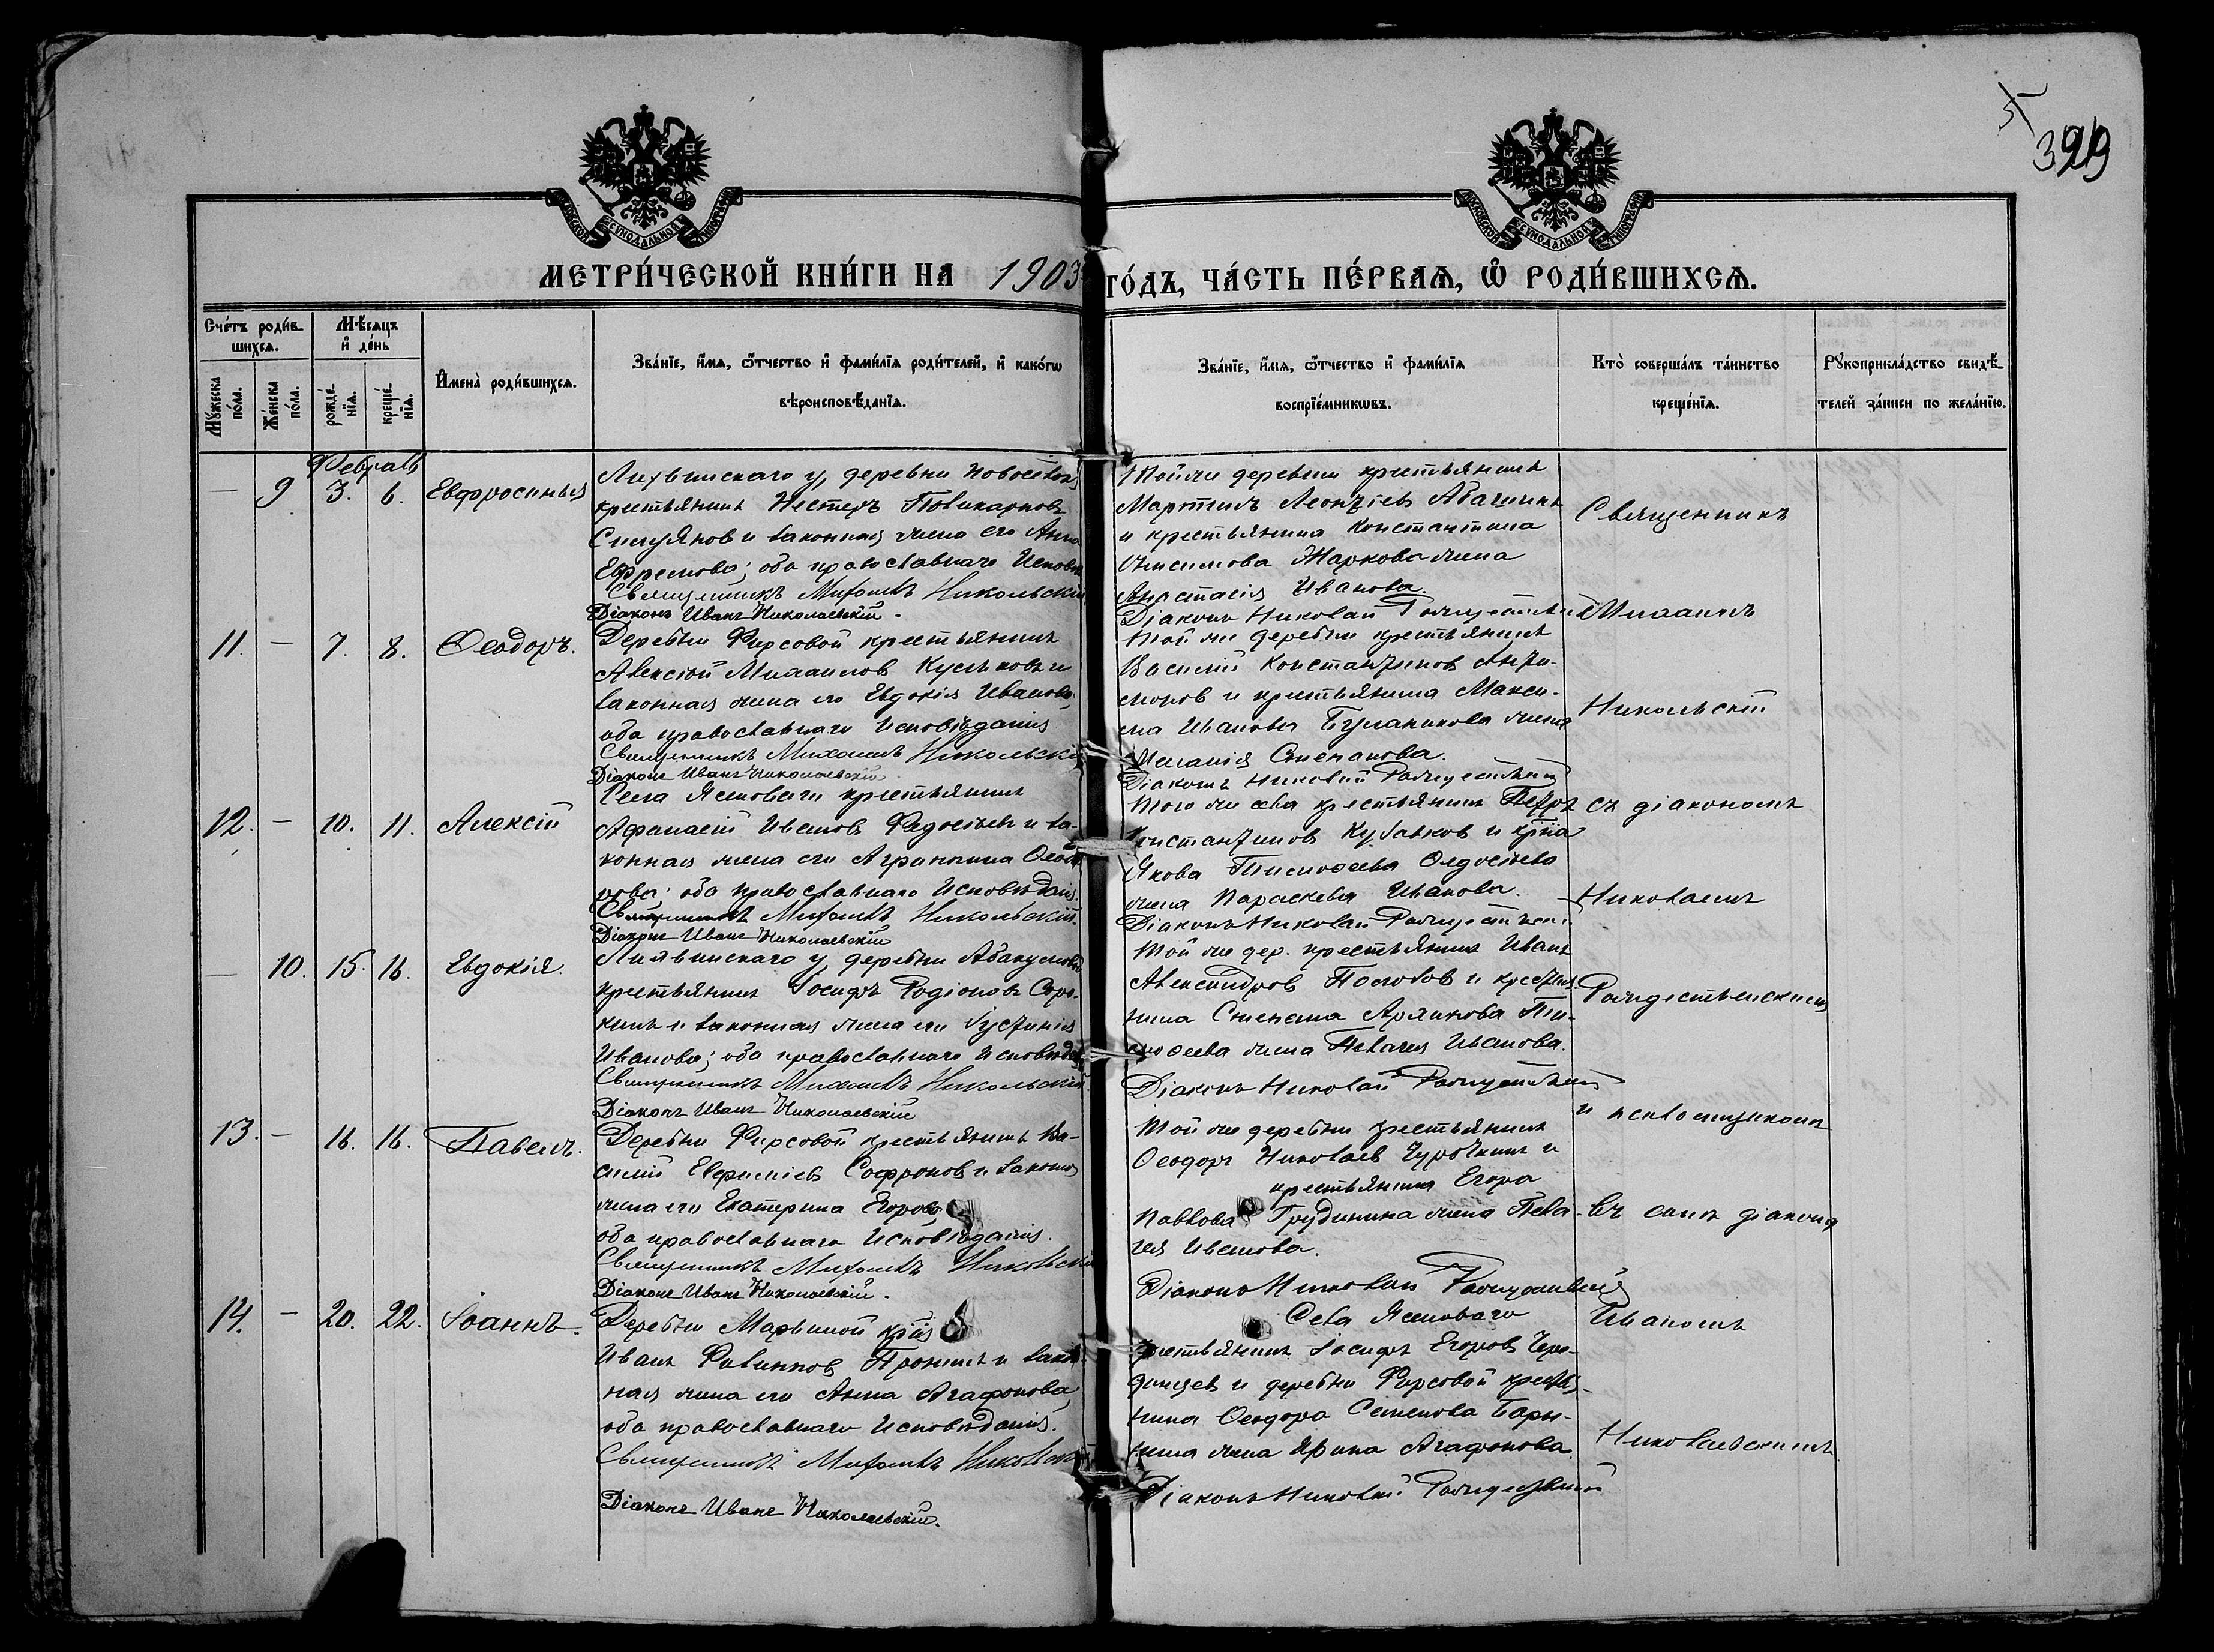 5
329
МОСКОВСКОЙ СѴНОДАЛЬНОЙ ТИПОГРАФІИ
МОСКОВСКОЙ СѴНОДАЛЬНОЙ ТИПОГРАФІИ
МЕТРИ́ЧЕСКОЙ КНИ́ГИ НА 1903
ГО́ДЪ, ЧА́СТЬ ПЕ́РВАѦ, Ѡ҆ РОДИ́ВШИХСѦ.
Сче́тъ роди́в-
шихсѧ.
Мꙋ́жеска по́ла.
Же́нска по́ла.
Мѣ́сѧцъ
и҆ де́нь
рожде́-
нїѧ.
креще́-
нїѧ.
И҆мена̀ роди́вшихсѧ.
Зва́нїе, и҆́мѧ, ѻ҆́тчество и҆ фами́лїѧ роди́телей, и҆ како́гѡ
вѣроисповѣ́данїѧ.
Зва́нїе, и҆́мѧ, ѻ҆́тчество и҆ фами́лїѧ
воспрїе́мникѡвъ.
Кто̀ соверша́лъ та́инство
креще́нїѧ.
Рꙋкоприкла́дство свидѣ́-
телей за́писи по жела́нїю.
Февраль
— 9 3. 6. Евфросинья
Лихвинскаго у, деревни
крестьянинъ Нестеръ Поликарповъ
и законная жена его Анна
Ефремова; оба православнаго Исповѣд
Священникъ Михаилъ Никольскій
Діаконъ Иванъ Николаевскій.
Той же деревни крестьянинъ
Мартинъ Леонтіевъ Абашинъ
и крестьянина Константина
Анисимова Жаркова жена
Анастасія Иванова.
Діаконъ Николай Рождественскій
11. — 7. 8. Ѳеодоръ.
Деревни Фирсовой крестьянинъ
Алексій Михаиловъ Кусковъ и
законная жена его Евдокія Иванова,
оба православнаго Исповѣданія
Священникъ Михаилъ Никольскій
Діаконъ Иванъ Николаевскій
Той же деревни крестьянинъ
Василій Константиновъ Анти-
моновъ и крестьянина Макси-
ма Иванова жена
Меланія Степанова.
Діаконъ Николай Рождественскій
12. — 10. 11. Алексій
Села Ясеноваго крестьянинъ
Афанасій Ивановъ Федосѣевъ и за-
конная жена его Агриппина Ѳеодо
рова; оба православнаго Исповѣданія.
Священникъ Михаилъ Никольскій.
Діаконъ Иванъ Николаевскій
Того же села крестьянинъ Петръ
Константиновъ и крестьянина
Якова Тимоѳеева Ѳедосѣева
жена Параскева Иванова.
Діаконъ Николай Рождественскій
— 10. 15. 16. Евдокія.
Лихвинскаго у, деревни Абакумовой
крестьянинъ Іосифъ Родіоновъ Соро-
кинъ и законная жена его Іустинія
Иванова; оба православнаго Исповѣдан
Священникъ Михаилъ Никольскій
Діаконъ Иванъ Николаевскій
Той же дер. крестьянинъ Иванъ
Александровъ и крестья
нина Степана Ти-
моѳеева жена Пелагея Иванова.
Діаконъ Николай Рождественскій
13. — 16. 16. Павелъ.
Деревни Фирсовой крестьянинъ Ва-
силій Евфиміевъ Софроновъ и законная
жена его Екатерина Егорова,
оба православнаго Исповѣданія.
Священникъ Михаилъ Никольскій
Діаконъ Иванъ Николаевскій.
Той же деревни крестьянинъ
Ѳеодоръ Николаевъ Чурочкинъ и
крестьянина Егора
Павлова Грудинина жена Пела-
гея Иванова.
Діаконъ Николай Рождественскій
14. — 20. 22. Іоаннъ.
Деревни Марьиной
Иванъ Филипповъ Пронинъ и закон
ная жена его Анна Агафонова,
оба православнаго Исповѣданія.
Священникъ Михаилъ Никольскій
Діаконъ Иванъ Николаевскій.
Села Ясеноваго
крестьянинъ Іосифъ Егоровъ
и деревни Фирсовой крестья-
нина Ѳеодора Семенова Бары-
кина жена Ирина Агафонова.
Діаконъ Николай Рождественскій
Священникъ
Михаилъ
Никольскій
съ діакономъ
Николаемъ
Рождественскимъ
и псаломщикомъ
въ санѣ діакона
Иваномъ
Николаевскимъ